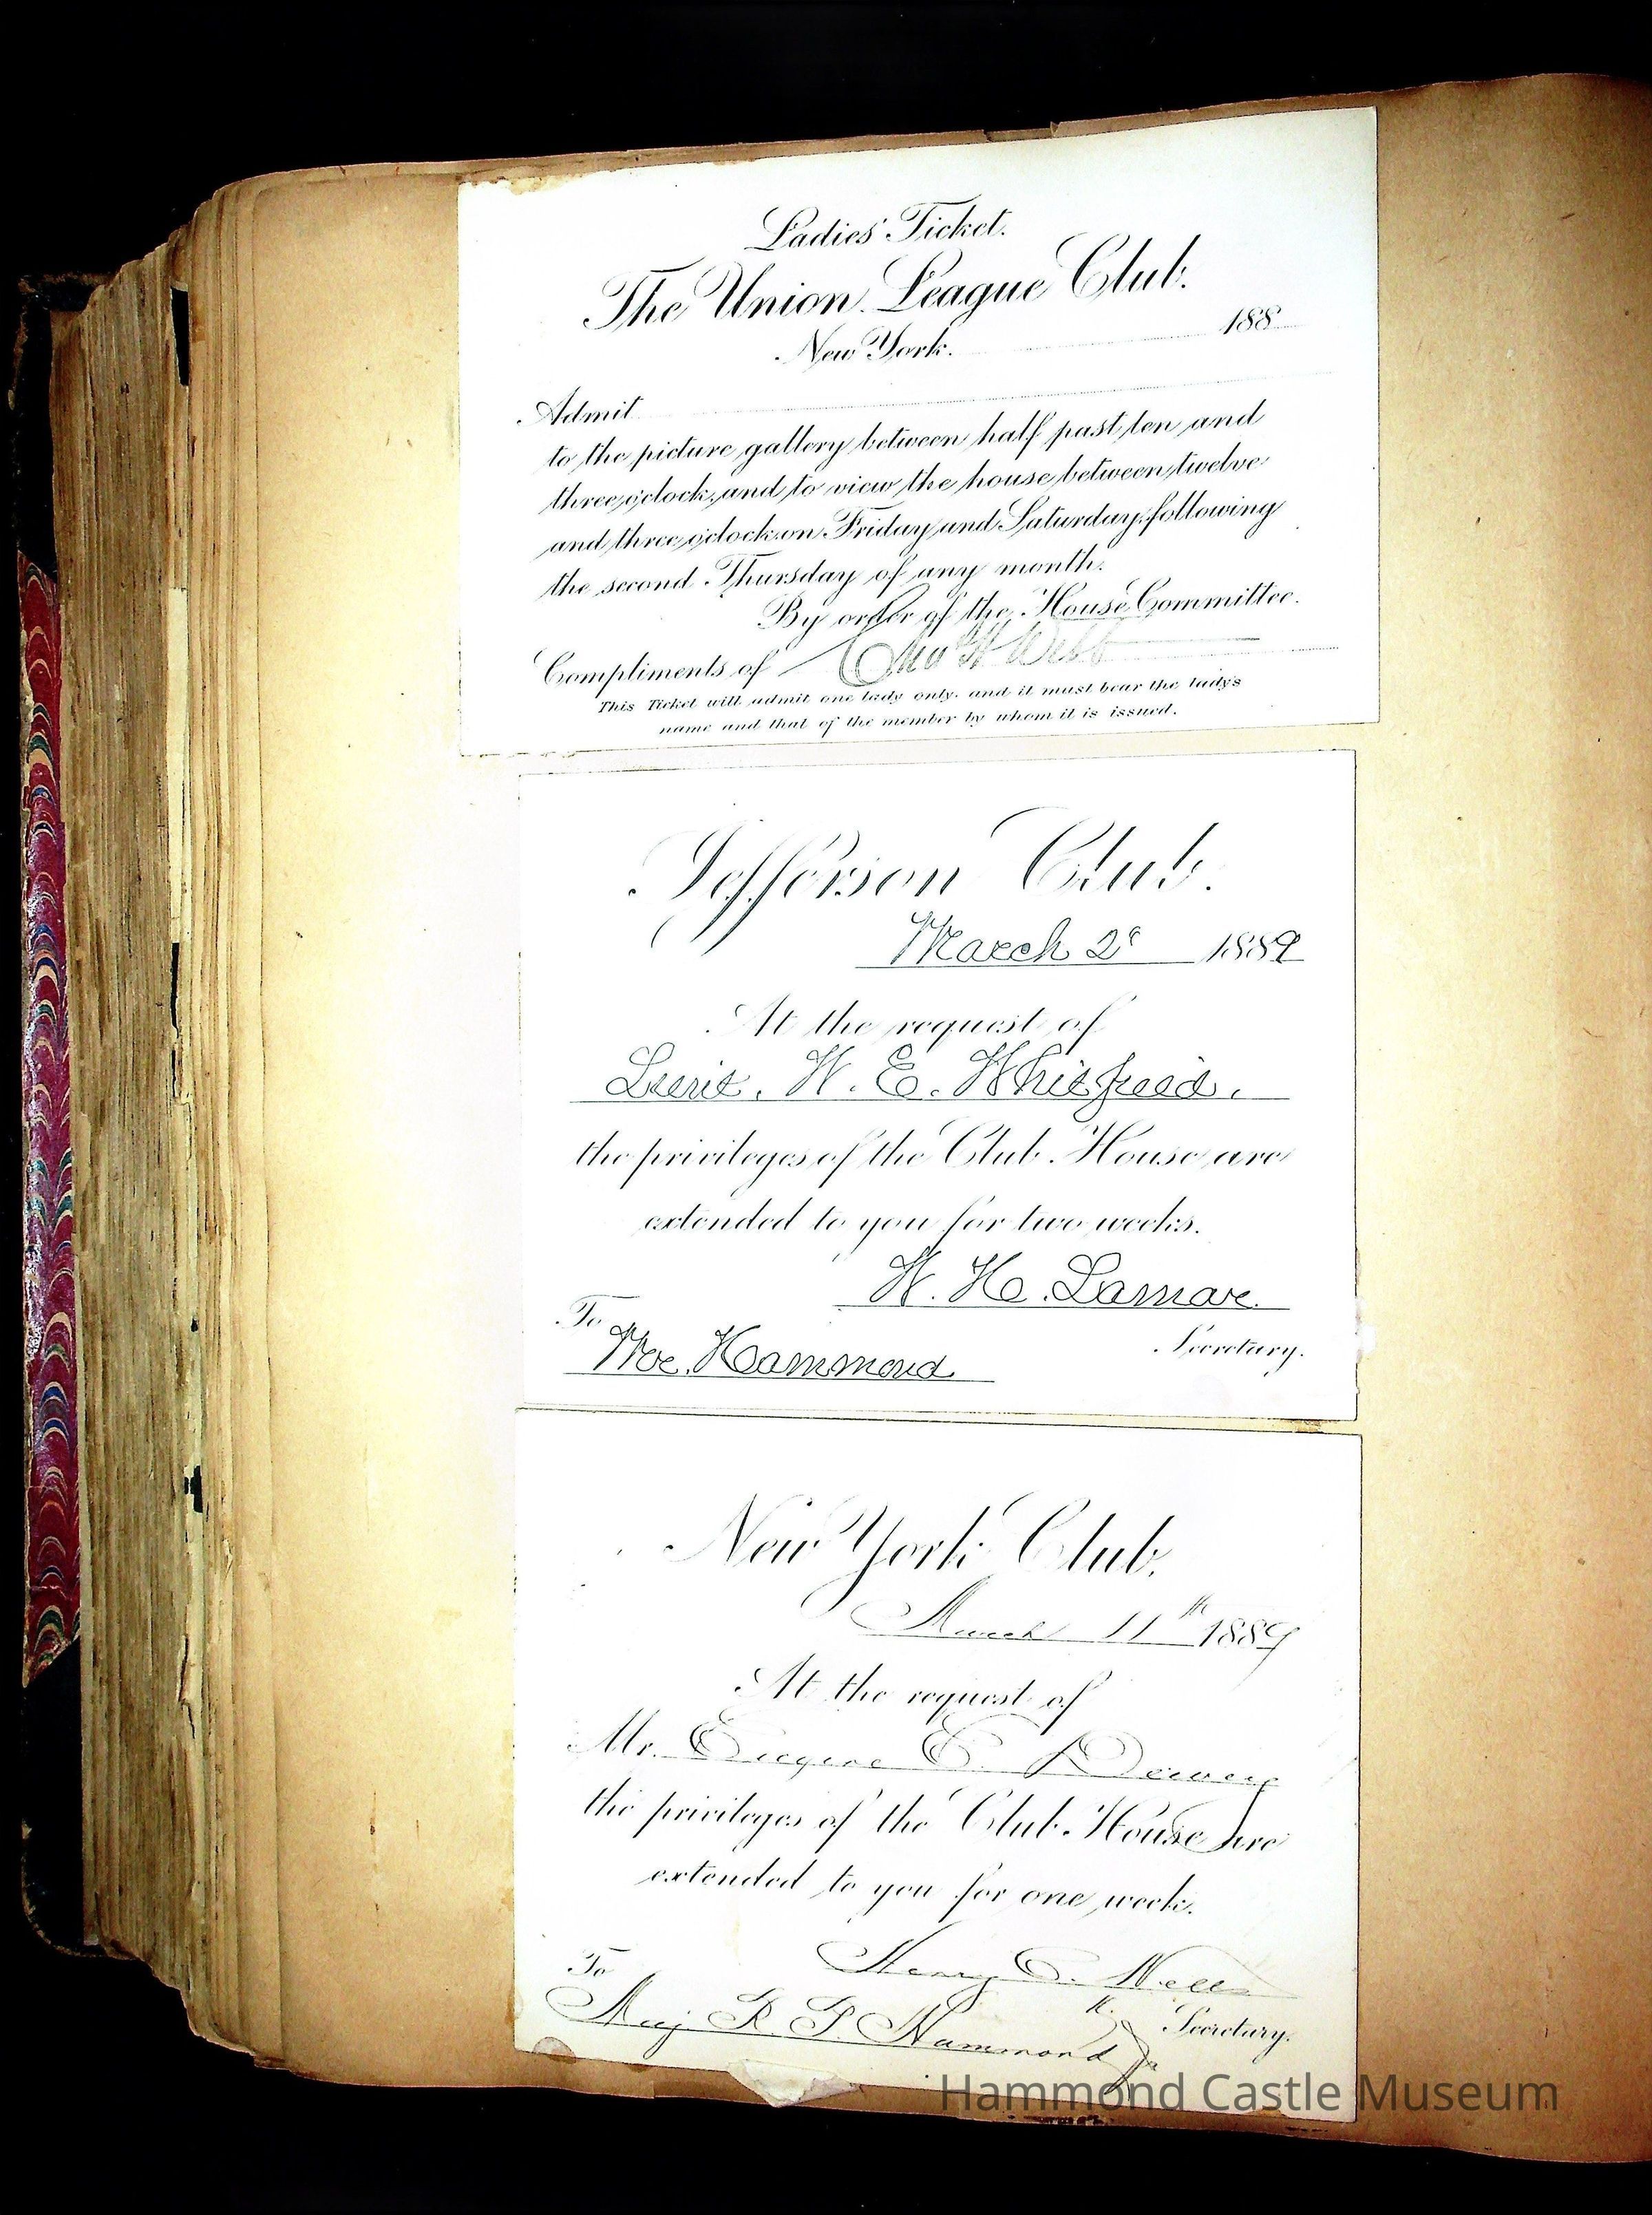 Ladies' Ticket.
The Union League Club.
New York. 188
Admit
to the picture gallery between half past ten and
three o'clock, and to view the house between twelve
and three o'clock on Friday and Saturday, following
the second Thursday of any month.
By order of the House Committee.
Compliments of Webb
This Ticket will admit one lady only, and it must bear the lady's
name and that of the member by whom it is issued.
Jefferson Club.
March 2d 1889
At the request of
Lieut. W. E. Whitfield.
the privileges of the Club House are
extended to you for two weeks.
W. H. Lamar.
To
Secretary.
Mr. Hammond
New York Club.
March 11th 1889
At the request of
Mr. Eugene E. Dewey
the privileges of the Club House are
extended to you for one week.
Henry C.
To
Secretary.
Maj R. P. Hammond Jr
Hammond Castle Museum